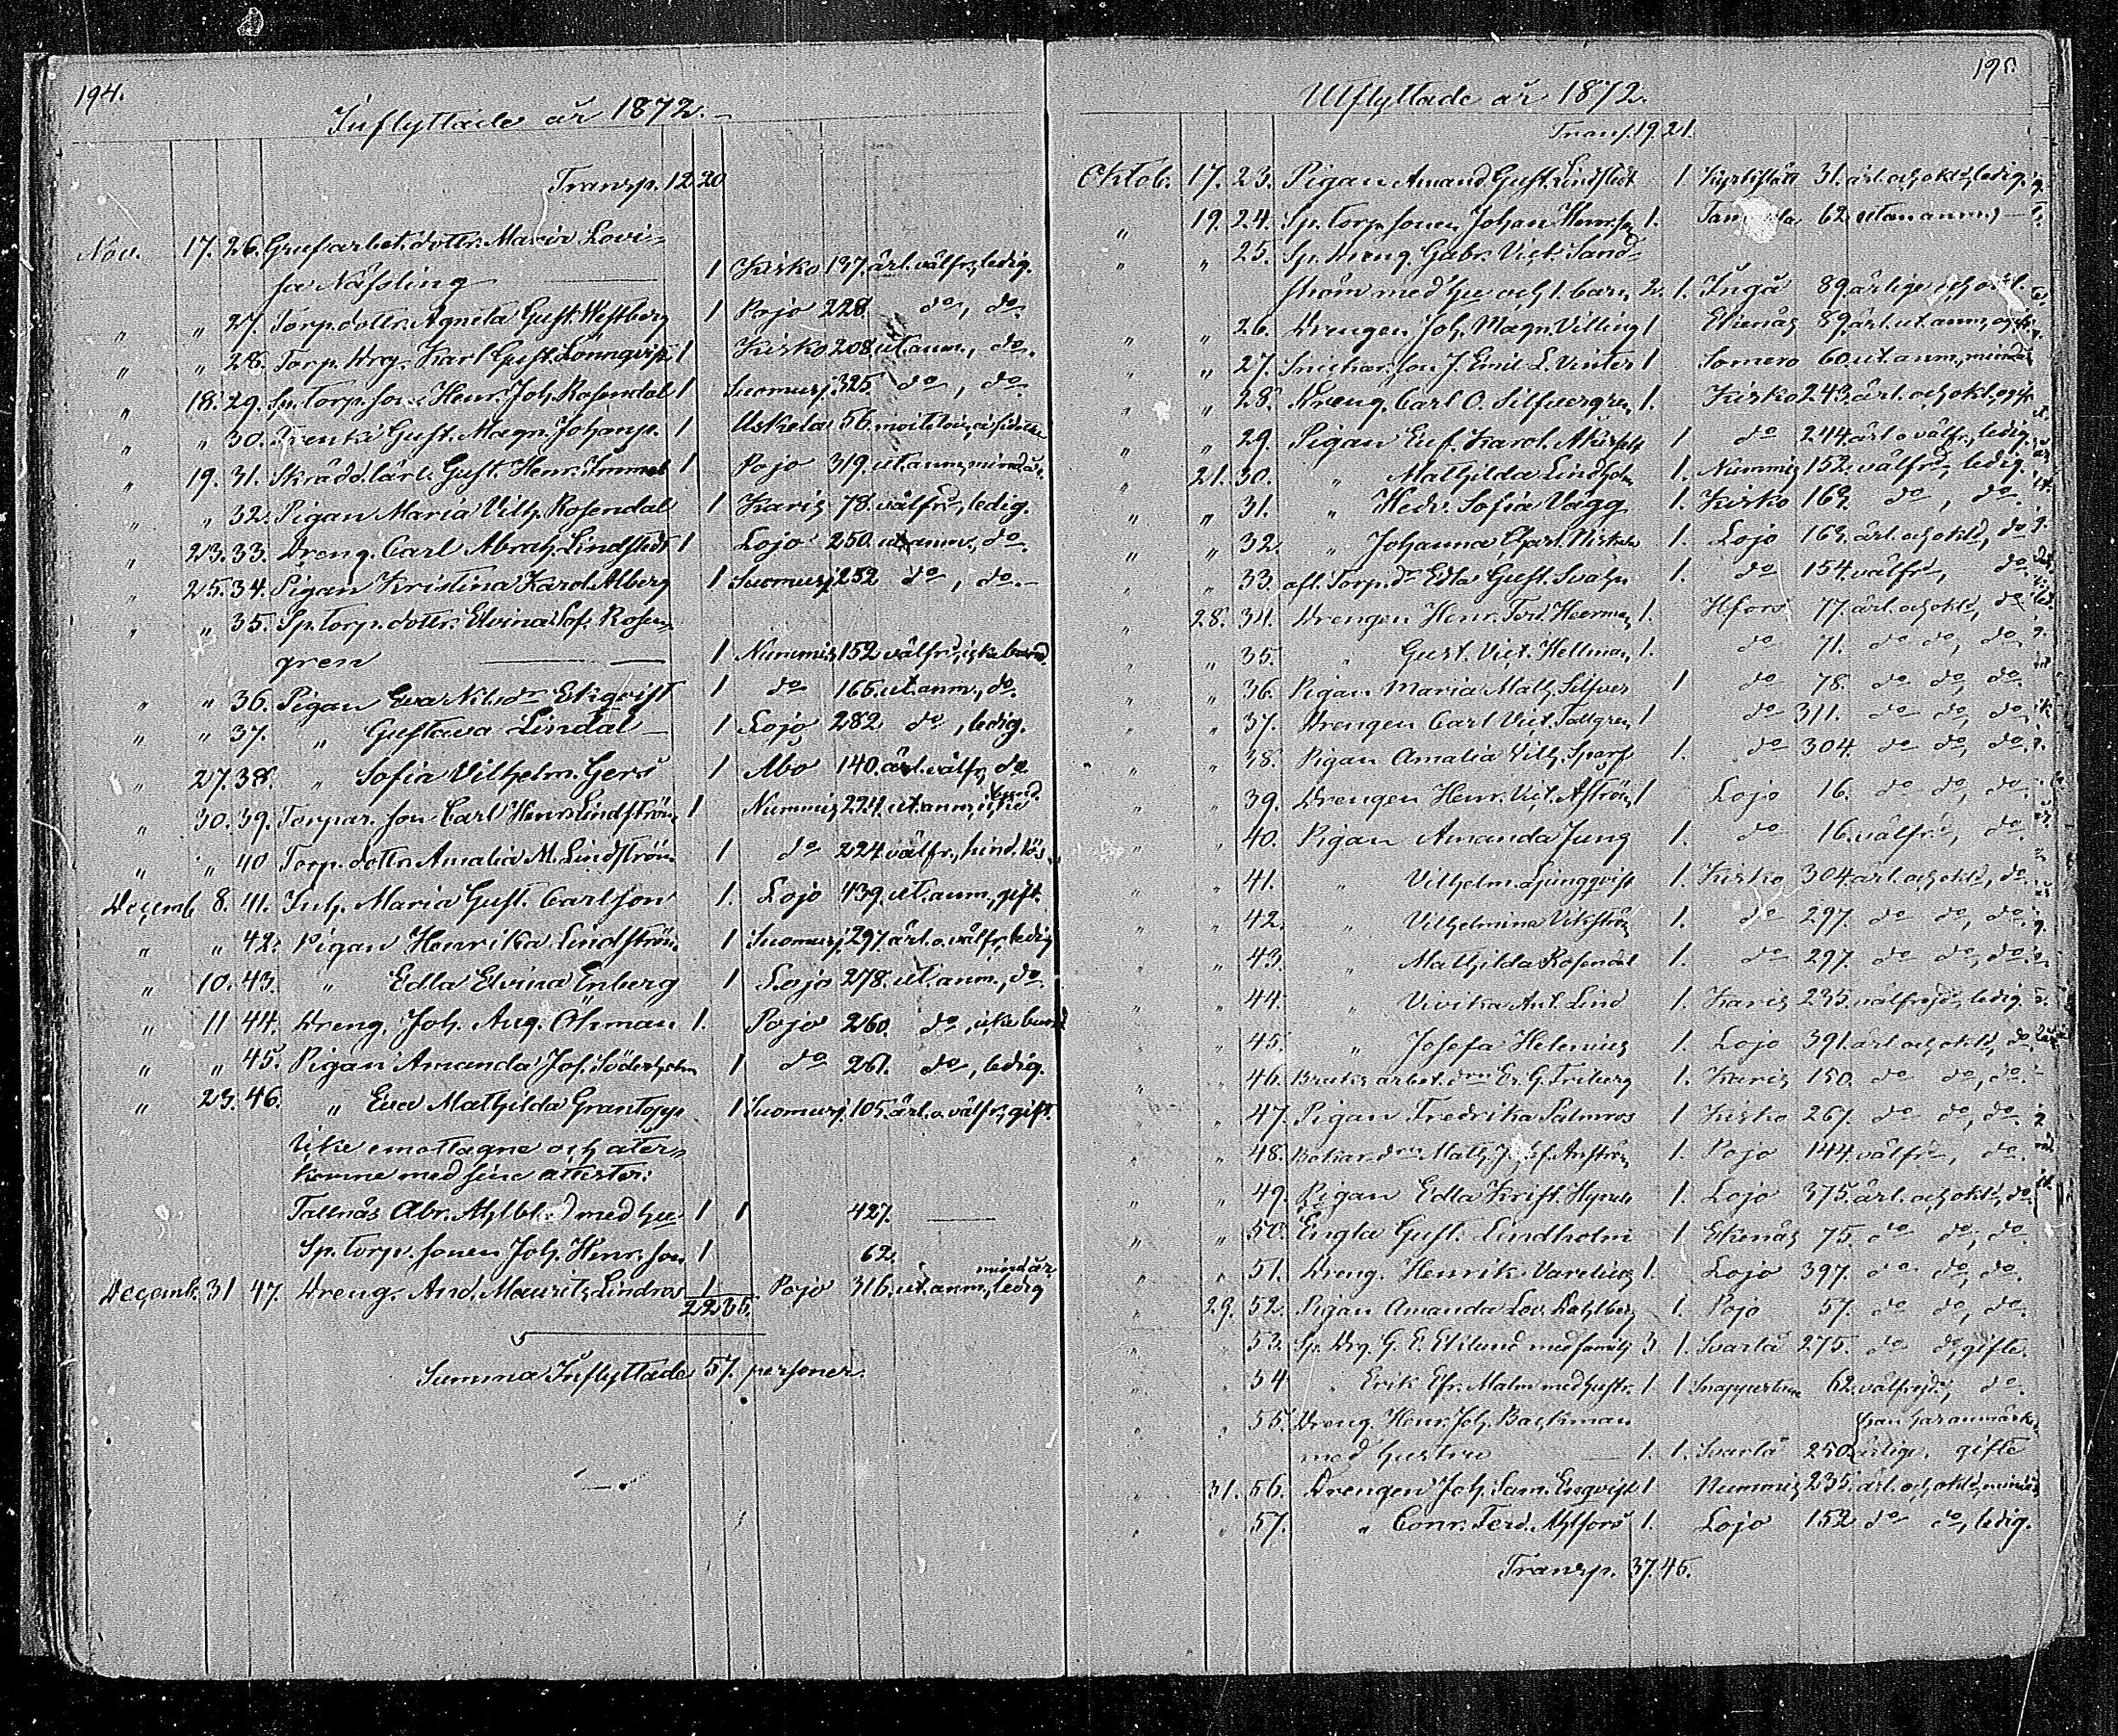 194.
Inflyttade år 1872.
Transp. 12. 20
Nov. 17. 26. Grufarbet. dottr. Maria Lovi-
sa Näsling 1 Kisko 137. ärl. välfr., ledig.
" " 27. Torp. dottr. Agneta Gust. Westberg 1 Pojo 228. do, do.
" " 28. Torp. drg. Karl Gust. Lönnqvist 1 Kisko 208. ut. anm., do.
" 18. 29. Sp. torp. son Henr. Joh. Rosendal 1 Suomusj. 325. do, do
" " 30. Gust. Magn. Johansp. 1 Uskela 56.
" 19. 31. Skrädd. lärl. Gust. Henr. Immel 1 Pojo 319. ut. anm., mindår.
" " 32. Pigan Maria Vilh. Rosendal 1 Karis 78. välfrd, ledig.
" 23. 33. Dreng. Carl Abrah. Lindstedt 1 Lojo 250. ut. anm., do.
" 25. 34. Pigan Kristina Karol. Alberg 1 Suomusj. 252 do, do.
" " 35. Sp. torp. dottr. Elvina Sof. Rosen-
gren 1 Nummis 152 välfrd, icke bund.
" " 36. Pigan Eva Nilsdr Ekqvist 1 do 165. ut. anm., do.
" " 37. " Gustava Lindal 1 Lojo 282 do, ledig.
" 27. 38. " Sofia Vilhelm. Gers 1 Åbo 140. ärl. välfr., do
" 30. 39. Torpar. son Carl Henr. Lindström 1 Nummis 224. ut. anm., icke bund.
" " 40 Torp. dottr. Amalia M. Lindström 1 do 224. välfr., hind. lös
Decemb. 8. 41. Inh. Maria Gust. Carlsson 1. Lojo 439. ut. anm., gift.
" " 42. Pigan Henrika Lindström 1 Suomusj. 297. ärl. o. välfr., ledig
" 10. 43. " Edla Elvina Enberg 1 Lojo 278. ut. anm., do.
" 11 44. Dreng. Joh. Aug. Öhman 1. Pojo 260. do, icke bund
" " 45. Pigan Amanda Jos. Söderholm 1 do 261. do, ledig.
" 23. 46. " Eva Mathilda Grantopp 1 Suomusj. 105. ärl. o. välfr., gift.
Icke emottagne och åter-
komne med sine attester:
Tallnäs Abr. Ahlbl med hu 1 1 427.
Sp. torp. sonen Joh. Henr. son 1 62.
Decemb. 31 47. Dreng. And. Mauritz Lindros 1 Pojo 316. ut. anm., mindår ledig
22 35.
Summa Inflyttade 57. personer.
195.
Utflyttade år 1872.
Transp. 19. 21.
Oktob. 17. 23. Pigan Amand. Gust. Lindstedt 1 Kyrkslätt 31. ärl. och okld, ledig.
" 19. 24. Sp. torp. sonen Johan Henr. son 1. 62. utan anm.
" " 25. Sp. dreng. Gabr. Vict. Sand-
ström med hu och 1. barn 2. 1. Ingå 89. ärlige och
" " 26. Drengen Joh. Magn. Villing 1 Ekenäs 89. ärl. ut. anm., ogift
" " 27. Snickar. son J. Emil L. Vinter 1 Somero 60. ut. anm., mindår
" " 28. Dreng. Carl O. Silfvergren 1. Kisko 243. ärl. och okl., ogift
" " 29. Pigan Euf. Karol. 1 do 244. ärl. o välfr., ledig.
" 21. 30. " Mathilda Lindholm 1. Nummis 152. välfrd, ledig.
" " 31. " Hedv. Sofia Vägg 1. Kisko 169. do, do.
" " 32. " Johanna Charl. 1. Lojo 169. ärl. och okld, do
" " 33. aft. Torp. dr Edla Gust. Svahn 1. do 154. välfrd, do.
" 28. 34. Drengen Henr. Ferd. Heerman 1. Hfors 77. ärl. och okld, do
" " 35. " Gust. Vict. Hellman 1. do 71. do do, do.
" " 36. Pigan Maria Math. Silfver 1 do 78. do do, do.
" " 37. Drengen Carl Vict. Tallgren 1 do 311. do do, do.
" " 38. Pigan Amalia Vilh. Sparf 1. do 304. do do, do.
" " 39. Drengen Henr. Vict. Åström 1 Lojo 16. do do, do.
" " 40. Pigan Amanda Jung 1. do 16. välfrd, do.
" " 41. " Vilhelm. Ljungqvist 1. Kisko 304. ärl. och okld, do.
" " 42. " Vilhelmina Vikström 1. do 297. do do, do.
" " 43. " Mathilda Rosendal 1. do 297. do do, do.
" " 44. " Vivika Ant. Lind 1. Karis 235. välfrejd, ledig.
" " 45. " Josefa Helenius 1. Lojo 391. ärl. och okld, do.
" " 46. Bruks arbet. dotr Er. G. Friberg 1. Karis 150. do do, do.
" " 47. Pigan Fredrika Palmros 1 Kisko 267. do do, do
" " 48. Math. 1. Pojo 144. välfrd, do.
" " 49. Pigan Edla Krist. 1. Lojo 375. ärl. och okld, do.
" " 50. Engla Gust. Lindholm 1 Ekenäs 75. do do, do.
" " 51. Dreng. Henrik Varelius 1. Lojo 397. do do, do.
" 29. 52. Pigan Amanda Lov. Dahlberg 1. Pojo 57. do do, do.
" " 53. Sp. Drg. G. E. Eklund med familj 3 1. Svartå 275. do do, gifte.
" " 54 " Erik Efr. Malm med hustr. 1. 1 Snappertuna 62. välfrejd, do.
" " 55. Dreng. Henr. Joh. Backman
med hustru 1. 1. Svartå 250. han har anmärkn. ärlige, gifte
" 31. 56. Drengen Joh. Sam. Engvist 1 Nummis 235. ärl. och okld, mindår
" " 57. " Conr. Ferd. Ahlfors 1. Lojo 152 do do, ledig.
Transp. 37. 45.